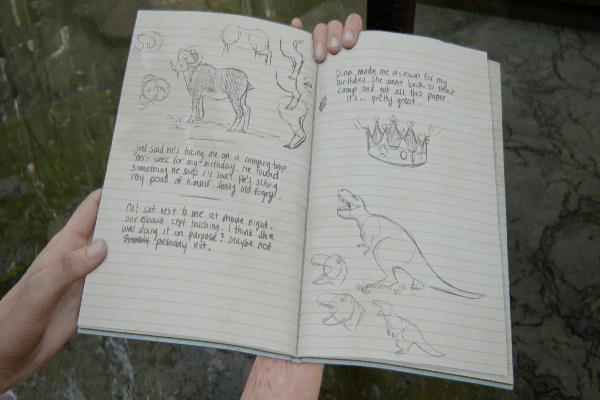 Joel said he's taking me on a camping trip
next week for my birthday. He found
something he says I'll love. He's acting
very proud of himself. Smug old fogey!
Cat sat next to me at movie night.
our elbows kept touching. I think she
was doing it on purpose? Maybe not.
probably not.
Dina made me a crown for my
birthday. She went back to that
camp and got all this paper.
It's... pretty great.